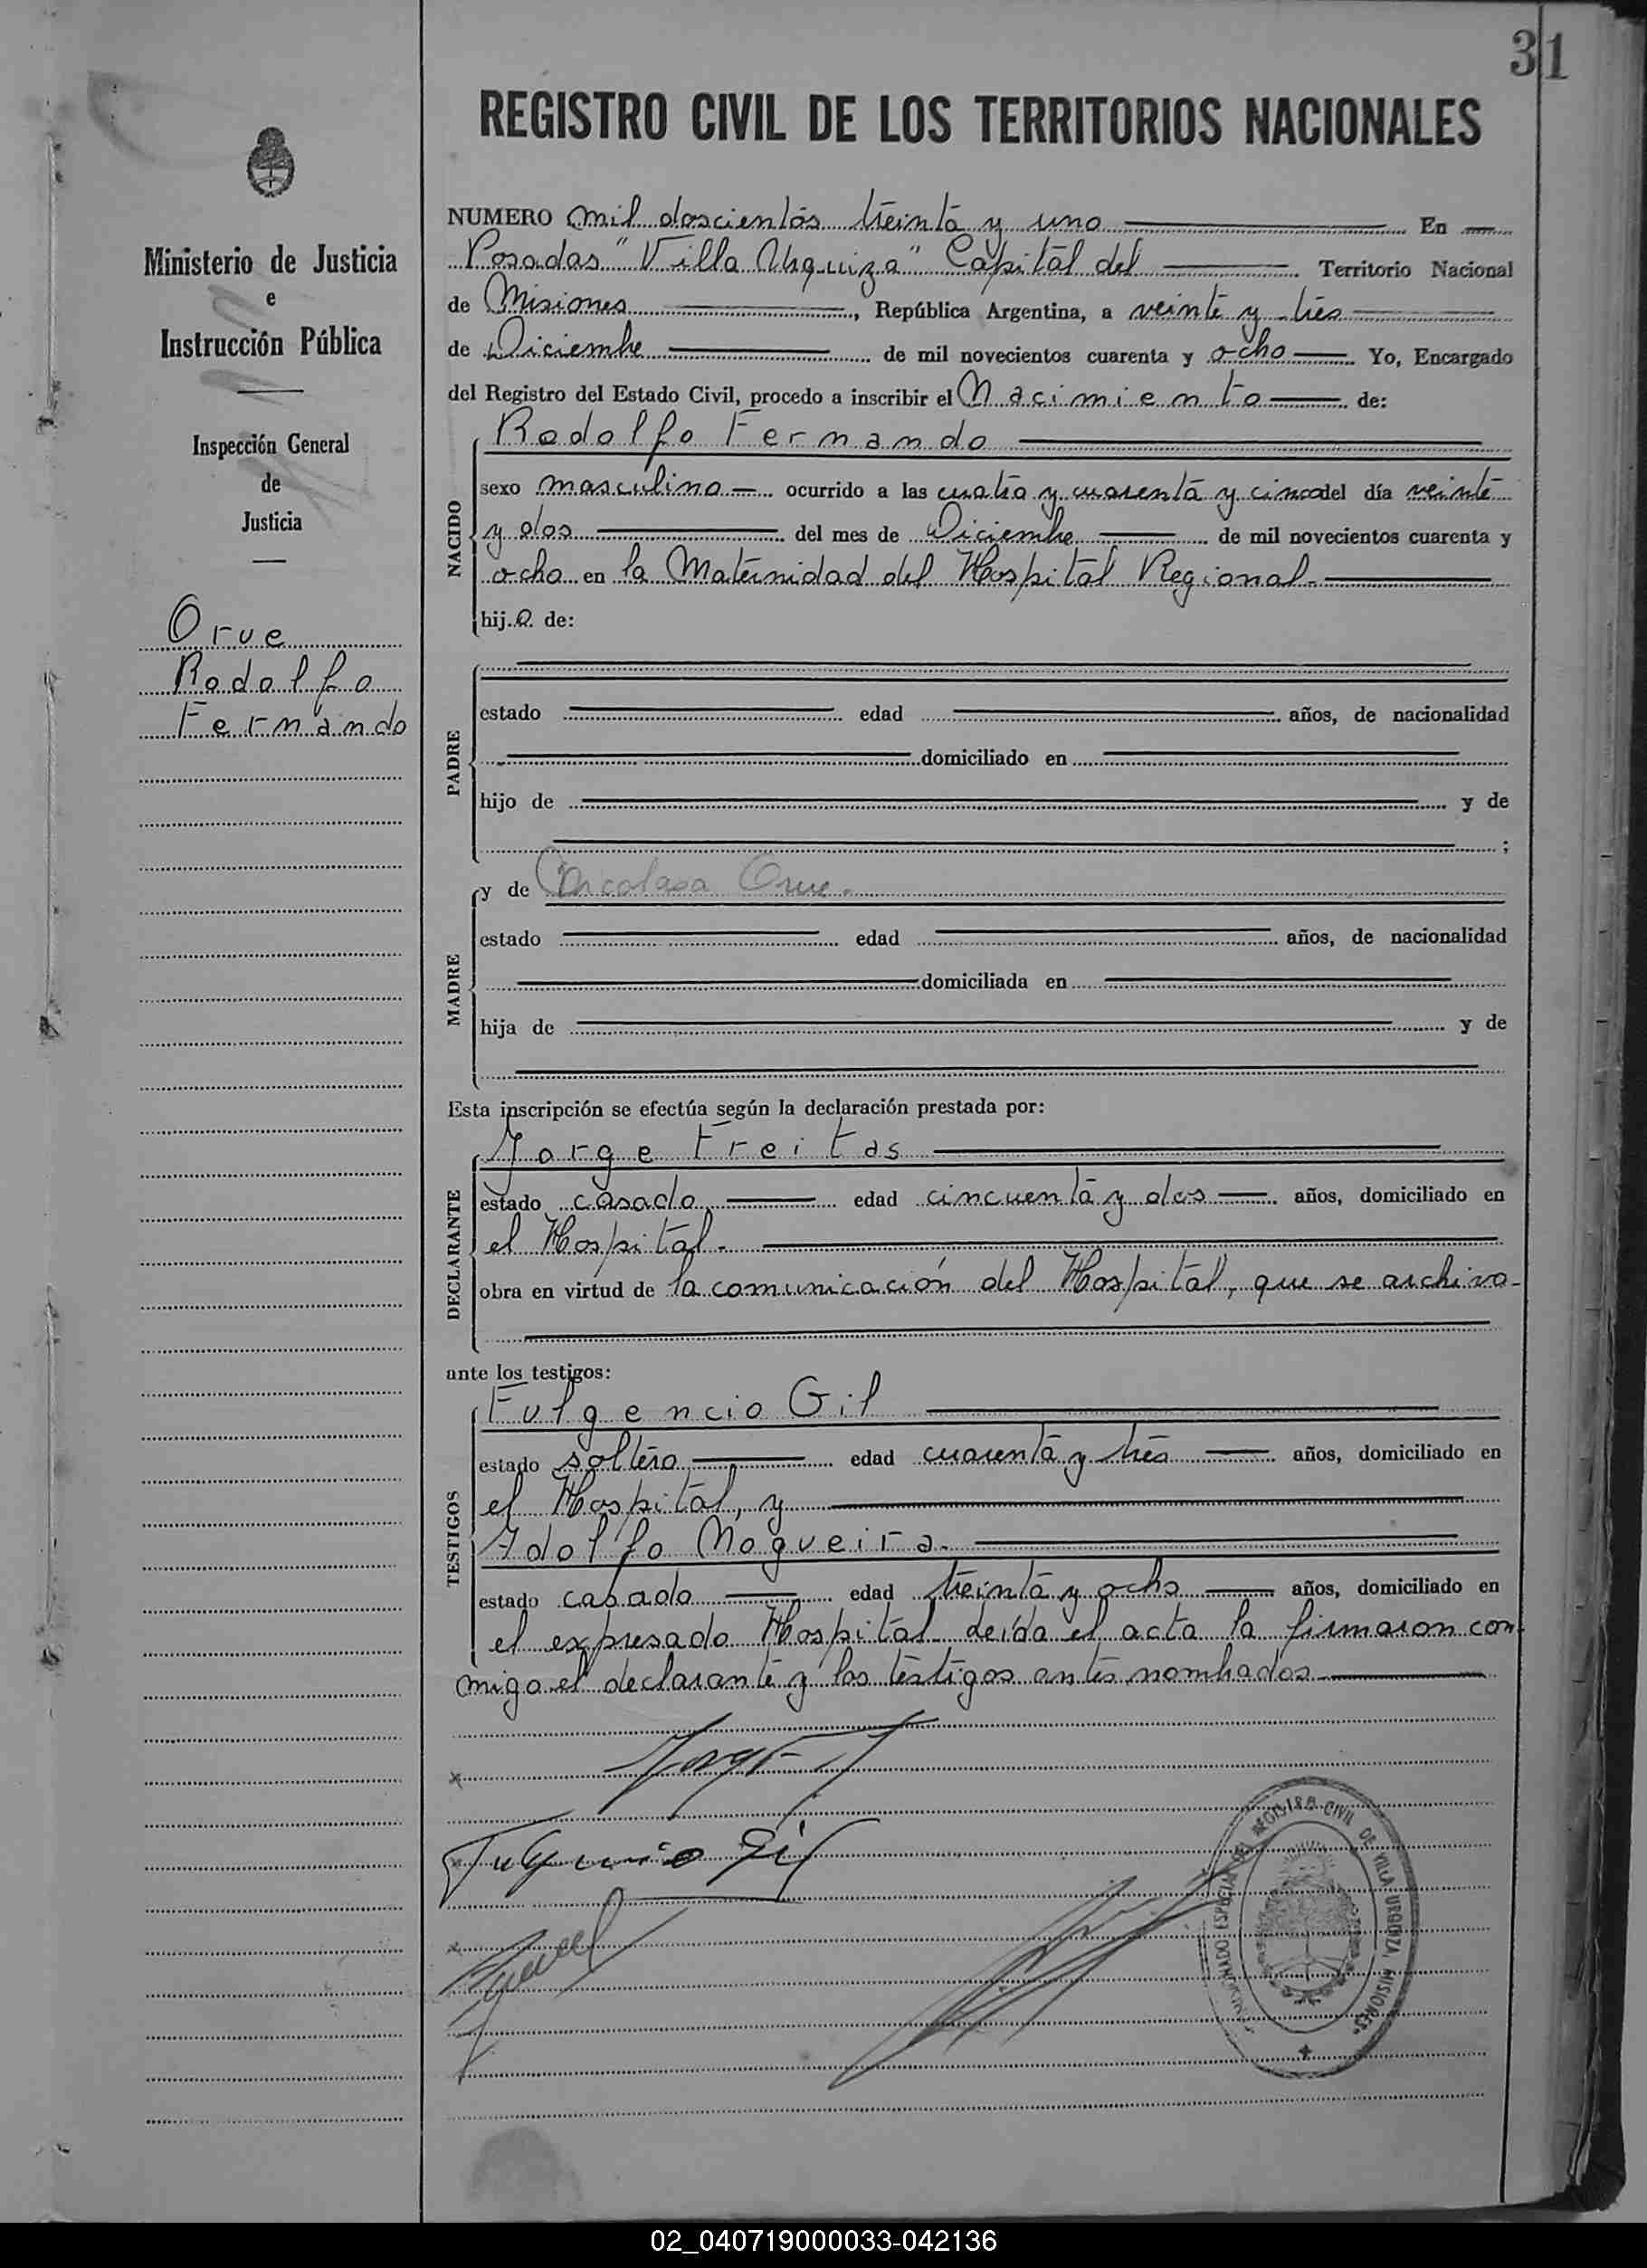 31
REGISTRO CIVIL DE LOS TERRITORIOS NACIONALES
Ministerio de Justicia
e
Instrucción Pública
Inspección General
de
Justicia
Orue
Rodolfo
Fernando
NUMERO mil doscientos treinta y uno En
Posadas "Villa Urquiza" Capital del Territorio Nacional
de Misiones, República Argentina, a veinte y tres
de Diciembre de mil novecientos cuarenta y ocho Yo, Encargado
del Registro del Estado Civil, procedo a inscribir el Nacimiento de:
Rodolfo Fernando
NACIDO
sexo masculino ocurrido a las cuatro y cuarenta y cinco del día veinte
y dos del mes de Diciembre de mil novecientos cuarenta y
ocho en la Maternidad del Hospital Regional.
hijo de:
PADRE
estado edad años, de nacionalidad
domiciliado en
hijo de y de
;
MADRE
y de Nicolasa Orue.
estado edad años, de nacionalidad
domiciliada en
hija de y de
Esta inscripción se efectúa según la declaración prestada por:
DECLARANTE
Jorge Freitas
estado casado edad cincuenta y dos años, domiciliado en
el Hospital.
obra en virtud de la comunicación del Hospital, que se archiva-
ante los testigos:
TESTIGOS
Fulgencio Gil
estado soltero edad cuarenta y tres años, domiciliado en
el Hospital, y
Adolfo Nogueira.
estado casado edad treinta y ocho años, domiciliado en
el expresado Hospital leída el acta la firmaron con-
migo el declarante y los testigos antes nombrados
Fulgencio Gil
ESPECIAL DEL REGISTRO CIVIL DE VILLA URQUIZA, MISIONES.
02_040719000033-042136